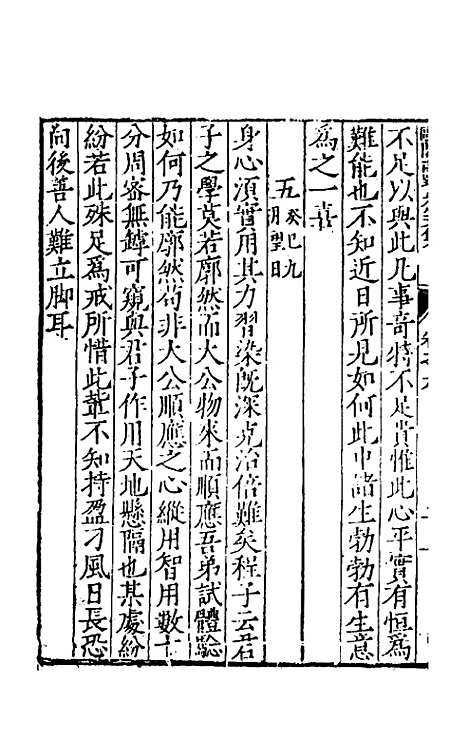 不足以與此凡事奇特不足貴惟此心平實有恒爲
難能也不知近日所見如何此中諸生勃勃有生意
爲之一喜
五癸巳九月望日
身心須實用其力習染旣深克治倍難矣程子云君
子之學莫若廓然而大公物來而順應吾弟試體驗
如何乃能廓然苟非大公順應之心縱用智用數十
分周密無罅可窺與君子作用天地懸隔也某處紛
紛若此殊足爲戒所惜此輩不知持盈刁風日長恐
向後善人難立脚耳